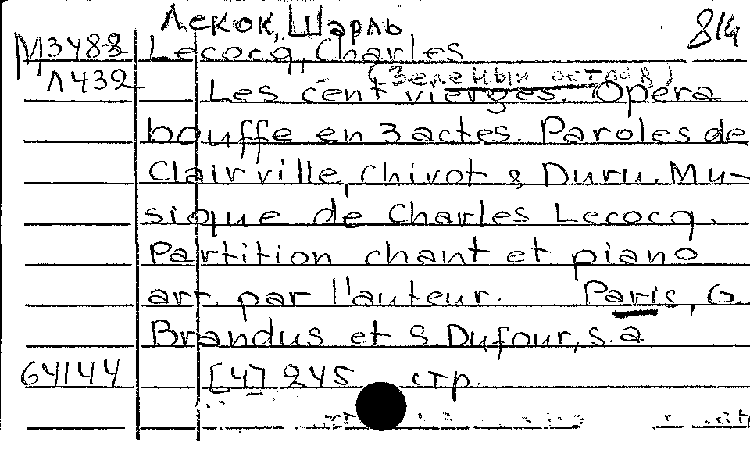 Лекок, Шарль 814
М3488 Lecocq, Charles
Л432 (Зеленый остров)
Les cent vierges. Opéra
bouffe en 3 actes. Paroles de
Clairville, Chivot & Duru. Mu-
sique de Charles Lecocq.
Partition chant et piano
arr. par l'auteur. Paris, G.
Brandus et S. Dufour, s.a
64144 [4] 245 стр.